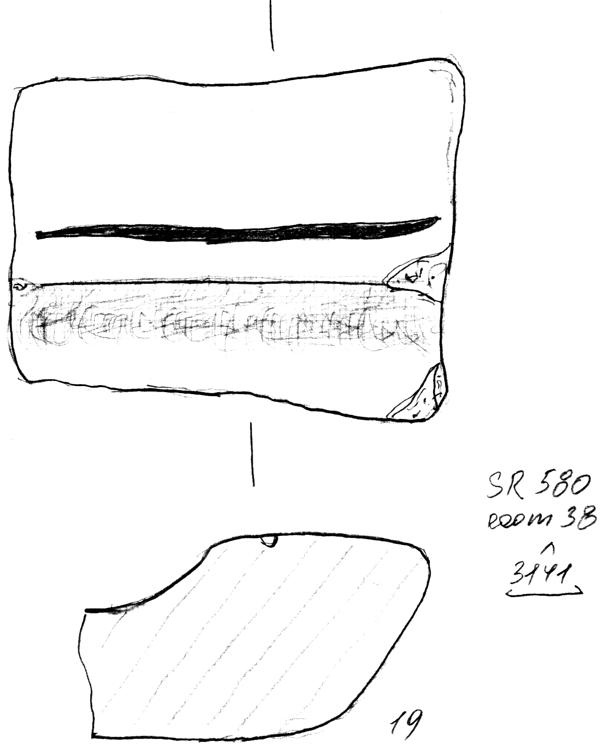 SR 580
room 38
^
3141
19